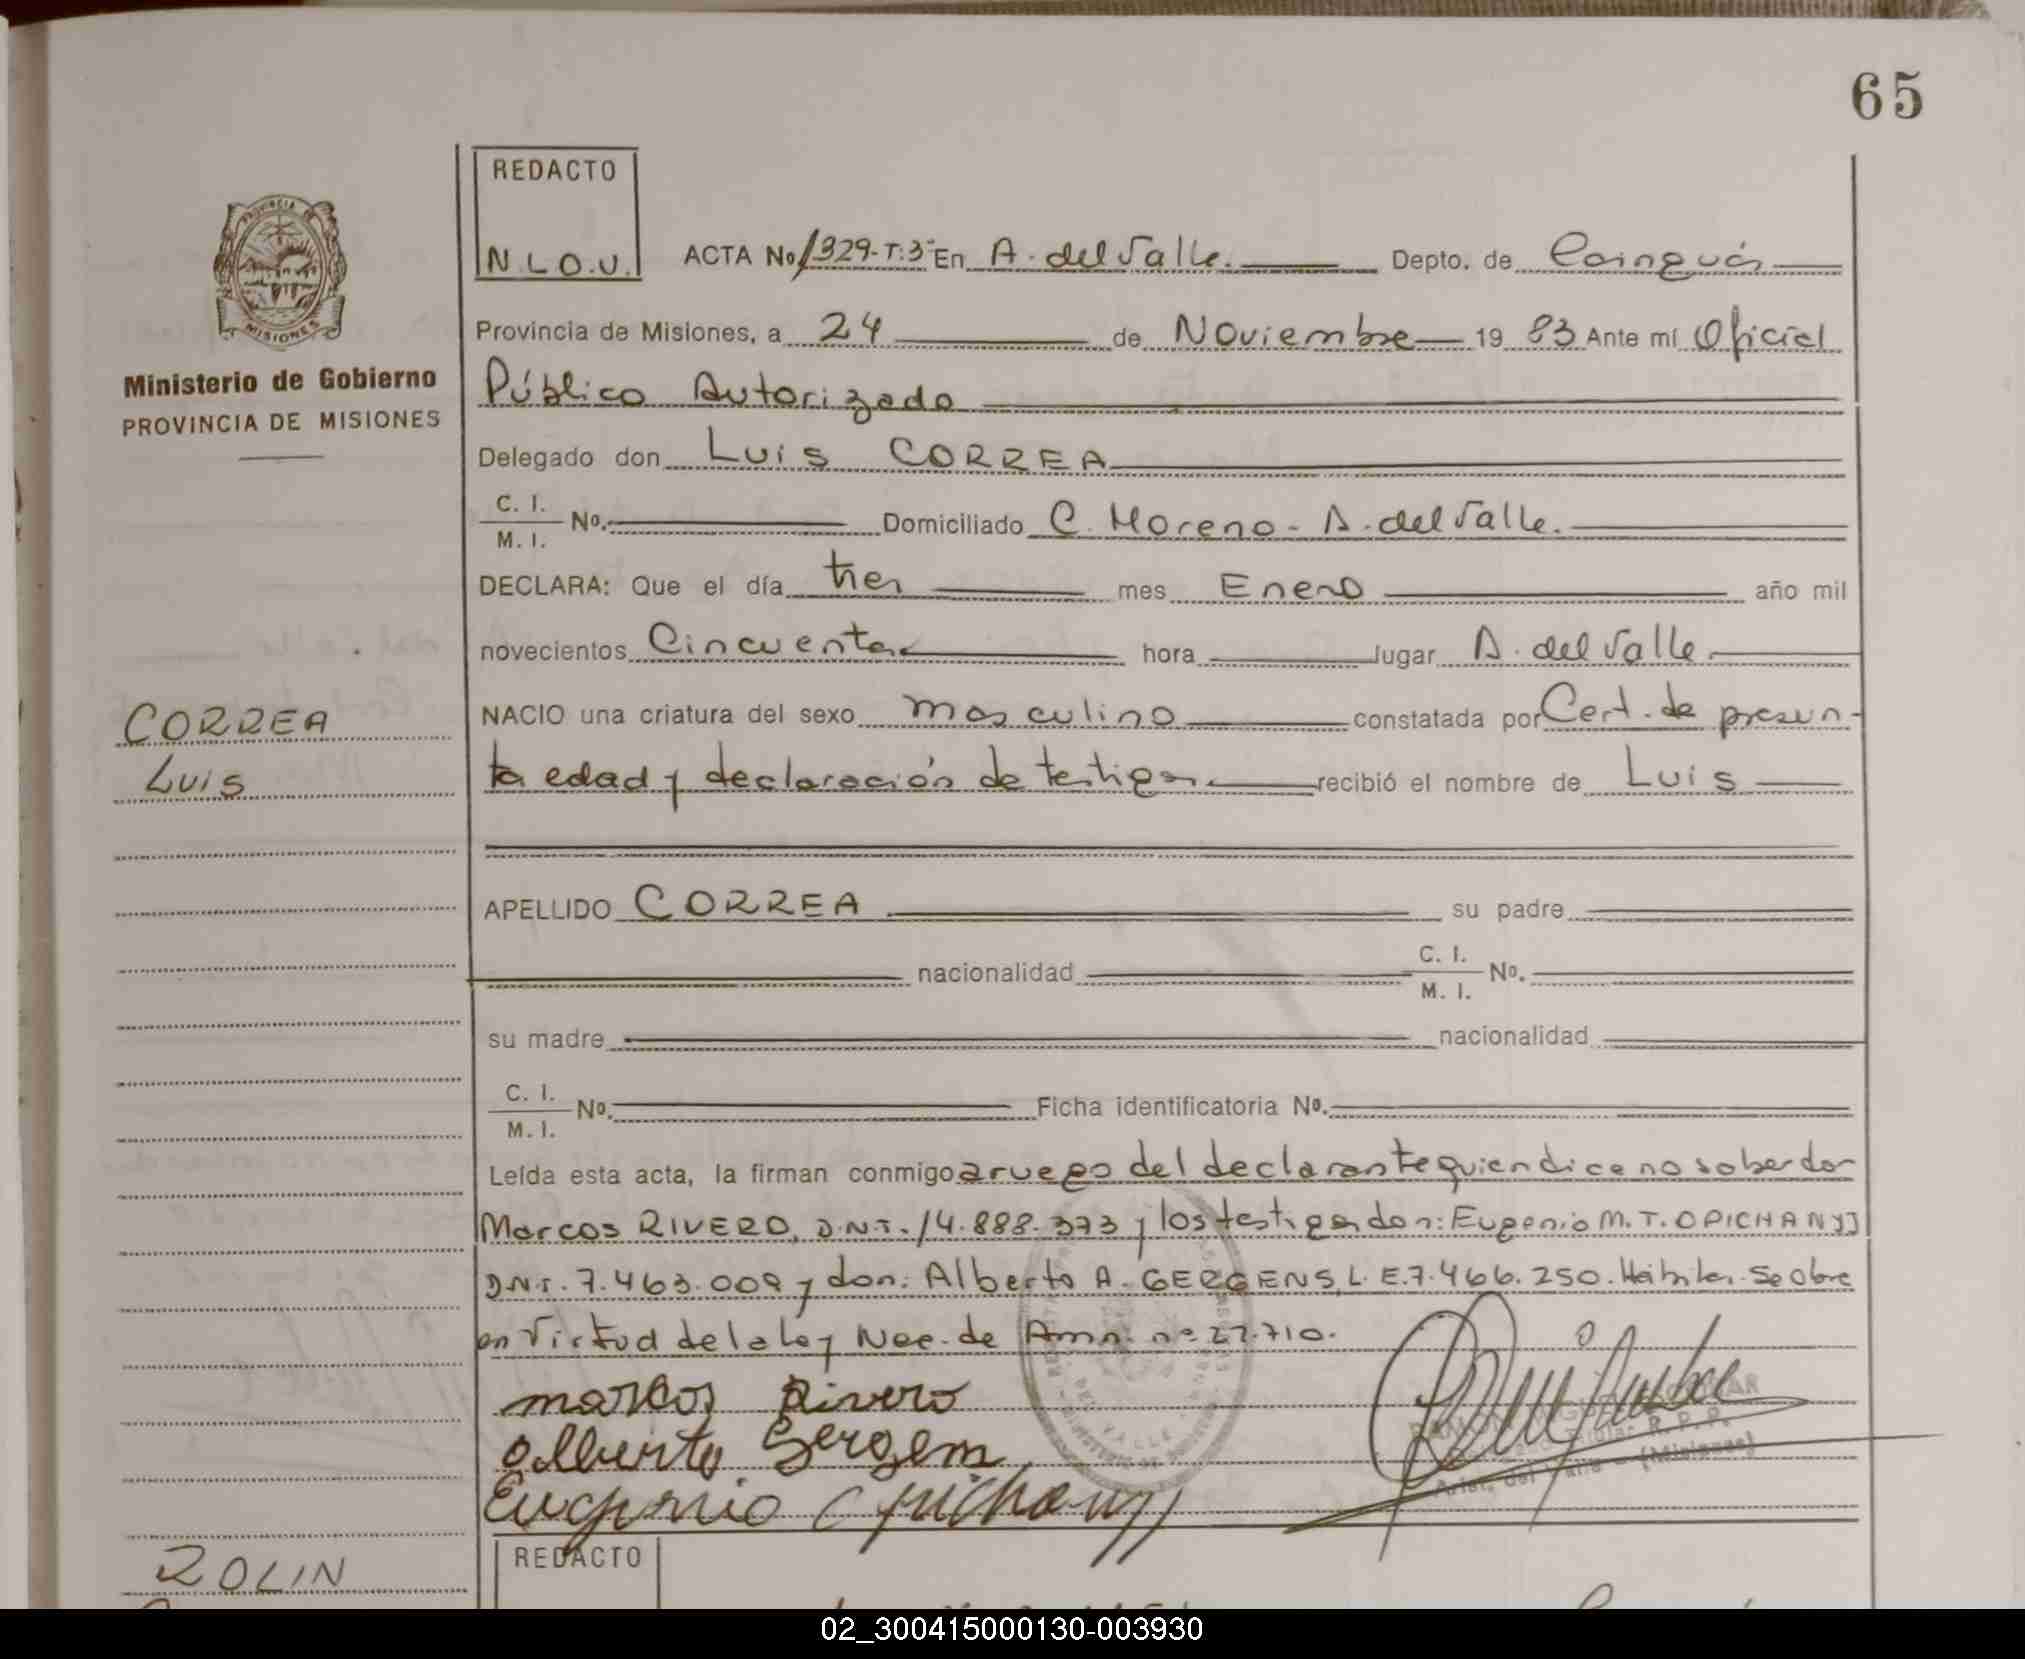 65
REDACTO
N.L.O.U.
ACTA No 1329-T:3º En A. del Valle. Depto. de Cainguás
PROVINCIA DE MISIONES
Ministerio de Gobierno
PROVINCIA DE MISIONES
Provincia de Misiones, a 24 de Noviembre 19 83 Ante mí Oficial
Público Autorizado
Delegado don Luis CORREA
C. I.
M. I. Nº. Domiciliado C. Moreno - A. del Valle.
DECLARA: Que el día tres mes Enero año mil
novecientos Cincuenta hora lugar A. del Valle
CORREA
Luis
NACIO una criatura del sexo masculino constatada por Cert. de presun-
ta edad y declaración de testigos. recibió el nombre de Luis
APELLIDO CORREA su padre
nacionalidad C. I.
M. I. Nº.
su madre nacionalidad
C. I.
M. I. Nº. Ficha identificatoria Nº.
Leída esta acta, la firman conmigo a ruego del declarante quien dice no saber don
Marcos RIVERO, D.N.I. 14.888.373 y los testigos don: Eugenio M. T. OPICHANYJ
D.N.I. 7.463.009 y don: Alberto A. GERGENS, L.E. 7.466.250. Hábiles. Se Obre
en Virtud de la Ley Nac. de Amn. nº 22.710.
Marcos Rivero
Alberto Gergens
Eugenio Opichanyj
DEL VALLE
R. P. P.
(Misiones)
ROLIN
REDACTO
02_300415000130-003930